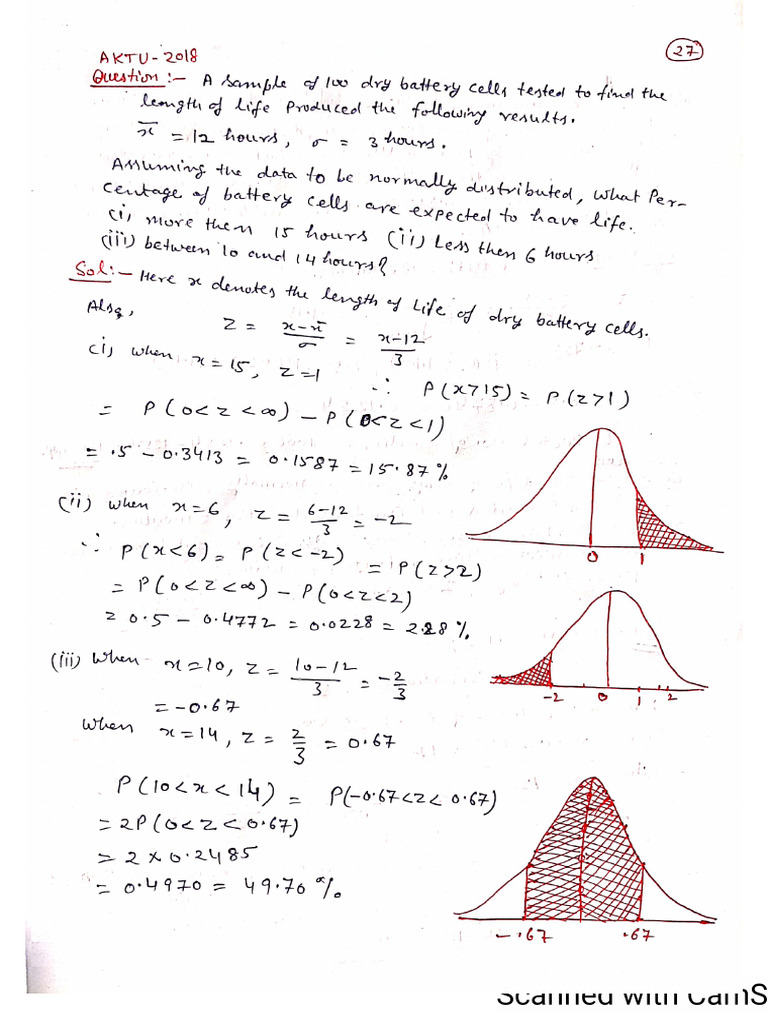 27
AKTU-2018
Question:- A sample of 100 dry battery cells tested to find the
length of life produced the following results.
x̄ = 12 hours, σ = 3 hours.
Assuming the data to be normally distributed, what Per-
centage of battery cells are expected to have life.
(i) more then 15 hours (ii) Less then 6 hours
(iii) between 10 and 14 hours?
Sol:- Here x denotes the length of Life of dry battery cells.
Also, z = (x-x̄)/σ = (x-12)/3
(i) when x=15, z=1 ∴ P(x>15) = P(z>1)
= P(0<z<∞) - P(0<z<1)
= .5 - 0.3413 = 0.1587 = 15.87%
0 1
(ii) when x=6, z = (6-12)/3 = -2
∴ P(x<6) = P(z<-2) = P(z>2)
= P(0<z<∞) - P(0<z<2)
= 0.5 - 0.4772 = 0.0228 = 2.28%
-2 0 1 2
(iii) When x=10, z = (10-12)/3 = -2/3
= -0.67
When x=14, z = 2/3 = 0.67
P(10<x<14) = P(-0.67<z<0.67)
= 2P(0<z<0.67)
= 2×0.2485
= 0.4970 = 49.70%
-.67 .67
Scanned with CamS